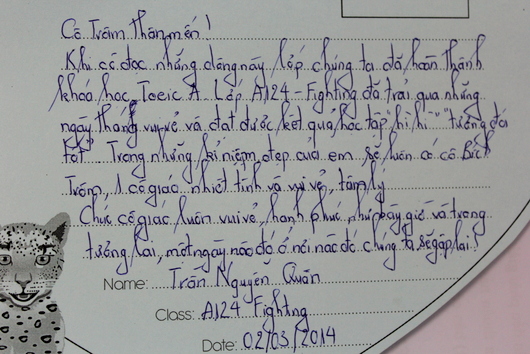 Cô Trâm thân mến!
Khi cô đọc những dòng này, lớp chúng ta đã hoàn thành
khóa học Toeic A. Lớp A124 - Fighting đã trải qua những
ngày tháng vui vẻ và đạt được kết quả học tập "hi hi" "tương đối
tốt". Trong những kỉ niệm đẹp của em sẽ luôn có cô Bích
Trâm, 1 cô giáo nhiệt tình và vui vẻ, tâm lý
Chúc cô giáo luôn vui vẻ, hạnh phúc bây giờ và trong
tương lai, một ngày nào đó ở nơi nào đó chúng ta sẽ gặp lại!
Name: Trần Nguyễn Quân
Class: A124 Fighting
Date: 02/03/2014